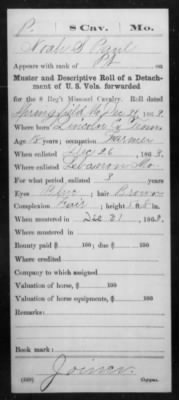 P. 8 Cav. Mo.
Noah S
Appears with rank of Pvt
Muster and Descriptive Roll of a Detach-
ment of U. S. Vols. forwarded
for the 8 Reg't Missouri Cavalry. Roll dated
Springfield, Mo, Dec 31, 1863.
Where born Lincoln Co Tenn
Age 18 years; occupation Farmer
When enlisted Dec 26, 1863.
Where enlisted Lebanon Mo.
For what period enlisted 3 years
Eyes Blue; hair Brown
Complexion Fair; height ft. in.
When mustered in Dec 31, 1863.
Bounty paid $ 100; due $ 100
Where credited
Company to which assigned
Valuation of horse, $ 100
Valuation of horse equipments, $ 100
Remarks:
Book mark:
Joiner
(339) Copyist.